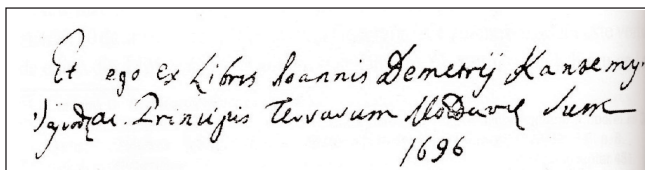 Et ego ex Libris Ioannis Demetrij Kantemy-
Principis Terrarum Moldavię Sum
1696